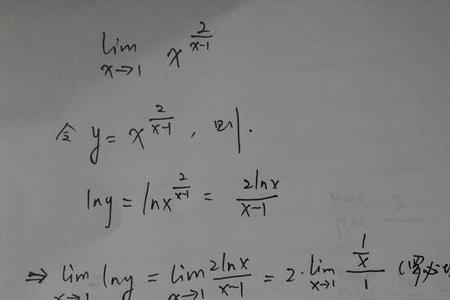 lim x→1 x^(2/(x-1))
令 y = x^(2/(x-1)), 则.
lny = lnx^(2/(x-1)) = 2lnx/(x-1)
⇒ lim x→1 lny = lim x→1 2lnx/(x-1) = 2·lim x→1 (1/x)/1 (罗必